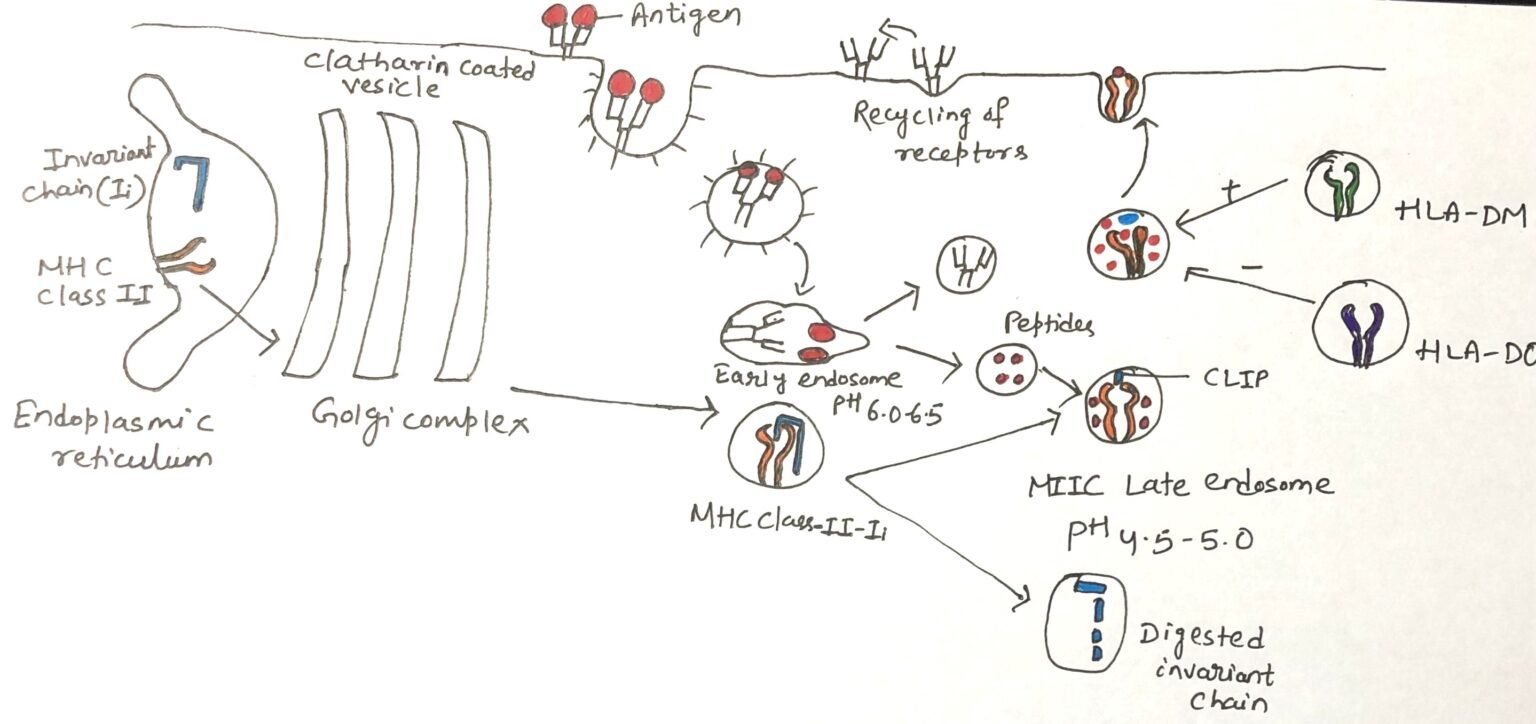 Antigen
Clatharin coated
vesicle
Recycling of
receptors
Invariant
chain (Ii)
MHC
class II
HLA-DM
Peptides
HLA-DO
Early endosome
PH 6.0-6.5
CLIP
Endoplasmic
reticulum
Golgi complex
MHC Class-II-Ii
MIIC Late endosome
PH 4.5-5.0
Digested
invariant
chain
+
−